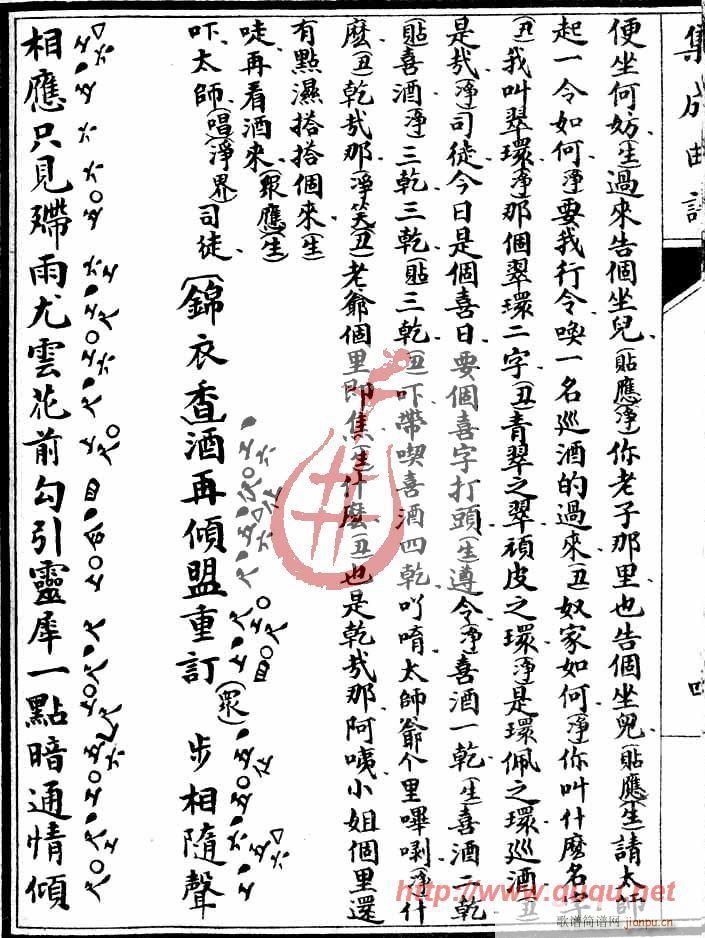 集成曲譜
便坐何妨(生)過來告個坐兒(貼應淨)你老子那里也告個坐兒(貼應生)請太師
起一令如何(淨)要我行令喚一名巡酒的過來(丑)奴家如何(淨)你叫什麽名字
(丑)我叫翠環(淨)那個翠環二字(丑)青翠之翠頑皮之環(淨)是環佩之環巡酒(丑)
是哉(淨)司徒今日是個喜日要個喜字打頭(生)遵令(淨)喜酒一乾(生)喜酒二乾
(貼)喜酒(淨)三乾三乾(貼)三乾(丑)吓帶喫喜酒四乾吖唷太師爺个里嗶喇(淨)什
麽(丑)乾哉那(淨笑丑)老爺個里即焦(生)什麽(丑)也是乾哉那阿咦小姐個里還
有點濕搭搭個來(生)
唗再看酒來(眾應)(生)
吓太師(唱)(淨界)司徒
(錦衣香)酒再傾盟重訂(眾)步相隨聲
相應只見殢雨尤雲花前勾引靈犀一點暗通情傾
http://www.ququ.net
歌谱简谱网 jianpu.cn